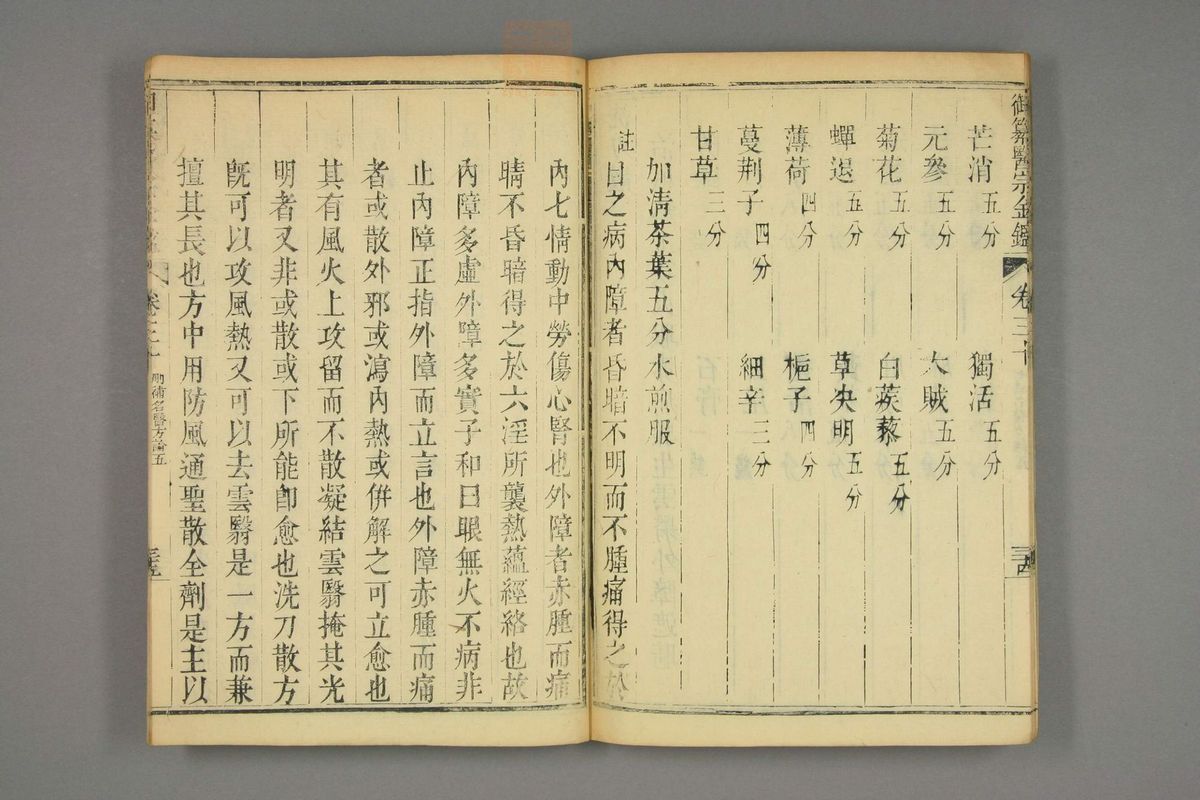 御纂醫宗金鑑 卷三十
芒消五分 獨活五分
元參五分 木賊五分
菊花五分 白蒺藜五分
蟬退五分 草决明五分
薄荷四分 梔子四分
蔓荆子四分 細辛三分
甘草三分
加清茶葉五分水煎服
註 目之病內障者昏暗不明而不腫痛得之於
內七情動中勞傷心腎也外障者赤腫而痛
睛不昏暗得之於六淫所襲熱蘊經絡也故
內障多虛外障多實子和曰眼無火不病非
止內障正指外障而立言也外障赤腫而痛
者或散外邪或瀉內熱或併解之可立愈也
其有風火上攻留而不散凝結雲翳掩其光
明者又非或散或下所能卽愈也洗刀散方
旣可以攻風熱又可以去雲翳是一方而兼
擅其長也方中用防風通聖散全劑是主以
卷三十 刪補名醫方論五 三五